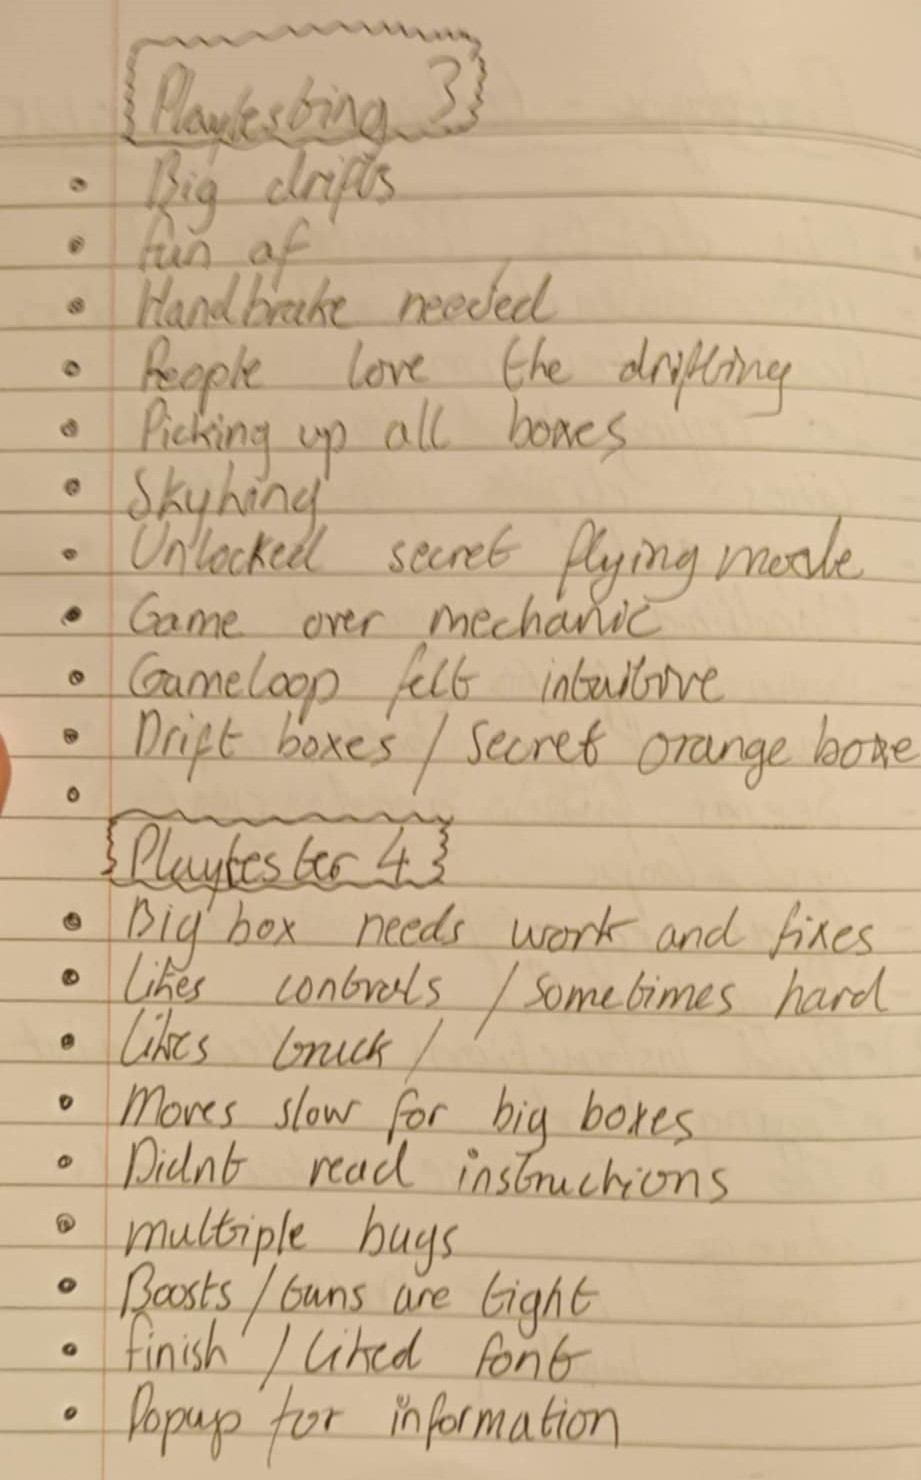 Playtesting 3
Big drifts
fun af
Handbrake needed
People love the drifting
Picking up all boxes
Skyhing
Unlocked secret flying mode
Game over mechanic
Gameloop felt intuitive
Drift boxes / Secret orange boxe
Playtester 4
Big box needs work and fixes
Likes controls / sometimes hard
Likes truck /
Moves slow for big boxes
Didnt read instructions
multiple bugs
Boosts / Guns are tight
finish / liked font
Popup for information